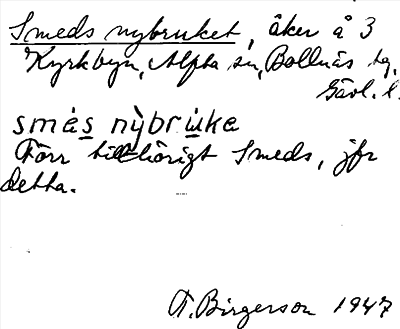 Smeds nybruket, åker å 3
Kyrkbyn, Alfta sn, Bollnäs tg,
Gävl. l.
smès nỳbrùke
Förr tillhörigt Smeds, jfr
detta.
F. Birgerson 1947